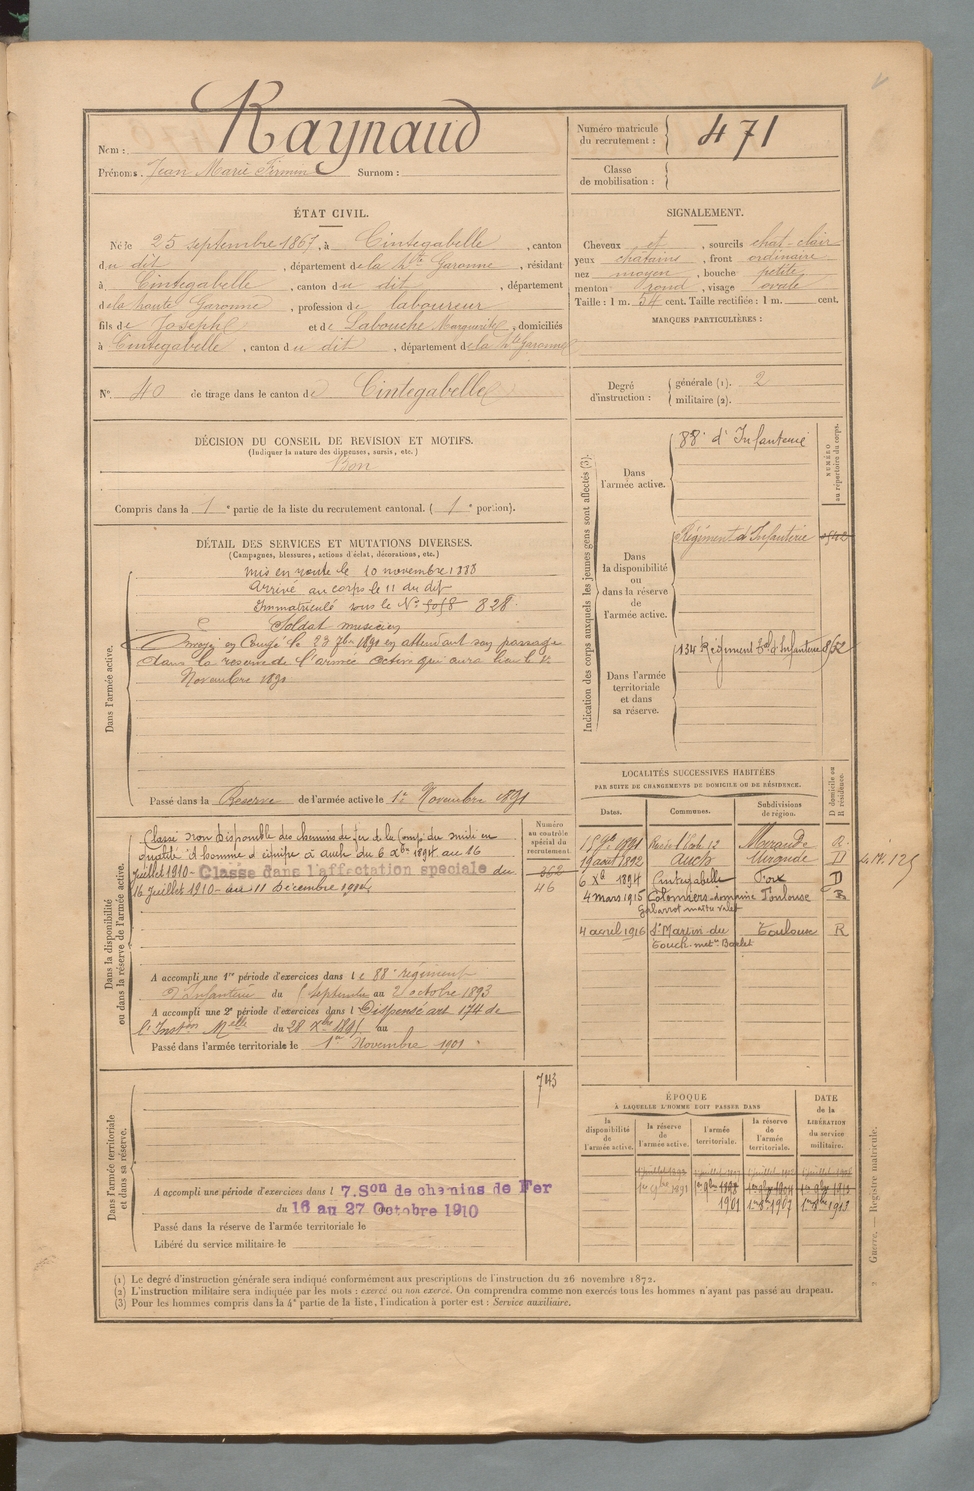 Nom : Raynaud
Prénoms. Jean Marie Firmin Surnom :
Numéro matricule
du recrutement : 471
Classe
de mobilisation :
ÉTAT CIVIL.
Né le 25 septembre 1867, à Cintegabelle, canton
du dit, département de la Hte Garonne, résidant
à Cintegabelle, canton du dit, département
de la haute Garonne, profession de laboureur
fils de Joseph et de Labouche Marguerite, domiciliés
à Cintegabelle, canton du dit, département de la Hte Garonne
SIGNALEMENT.
Cheveux et, sourcils chat-clair
yeux chatains, front ordinaire
nez moyen, bouche petite
menton rond, visage ovale
Taille : 1 m. 54 cent. Taille rectifiée : 1 m. cent.
MARQUES PARTICULIÈRES :
N°. 40 de tirage dans le canton de Cintegabelle
Degré
d'instruction :
générale (1). 2
militaire (2).
DÉCISION DU CONSEIL DE REVISION ET MOTIFS.
(Indiquer la nature des dispenses, sursis, etc.)
Bon
Compris dans la 1e partie de la liste du recrutement cantonal. (1e portion).
DÉTAIL DES SERVICES ET MUTATIONS DIVERSES.
(Campagnes, blessures, actions d'éclat, décorations, etc.)
Dans l'armée active.
mis en route le 10 novembre 1888
Arrivé au corps le 11 du dit
Immatriculé sous le N° 828
Soldat musicien
Envoyé en Congé le 23 7bre 1891 en attendant son passage
dans la reserve de l'armée active qui aura lieu le 1er
Novembre 1891
Passé dans la Reserve de l'armée active le 1er Novembre 1891
Indication des corps auxquels les jeunes gens sont affectés (3).
NUMÉRO
au répertoire du corps.
Dans
l'armée active.
88e d'Infanterie
Dans
la disponibilité
ou
dans la réserve
de
l'armée active.
Régiment d'Infanterie
Dans l'armée
territoriale
et dans
sa réserve.
134 Régiment Tal d'Infanterie
LOCALITÉS SUCCESSIVES HABITÉES
PAR SUITE DE CHANGEMENTS DE DOMICILE OU DE RÉSIDENCE.
D domicile ou
R résidence.
Dates. Communes. Subdivisions
de région.
Mirande
19 août 1892 Auch Mirande D
6 Xbre 1894 Cintegabelle Foix D
4 mars 1915 Colomiers domaine Toulouse R
4 avril 1916 St Martin du Toulouse R
Touch
Dans la disponibilité
ou dans la réserve de l'armée active.
Numéro
au contrôle
spécial du
recrutement.
46
Classé non disponible des chemins de fer de la Comp. du midi en
qualité d'homme d'équipe à Auch du 6 Xbre 1894 au 16
Juillet 1910 - Classé dans l'affectation spéciale du
16 Juillet 1910 - au 11 Décembre 1914
A accompli une 1re période d'exercices dans le 88e régiment
d'Infanterie du 5 septembre au 2 octobre 1893
A accompli une 2e période d'exercices dans l Dispensé art 174 de
l'Inston Melle du 28 Xbre 1895 au
Passé dans l'armée territoriale le 1er Novembre 1901
Dans l'armée territoriale
et dans sa réserve.
743
A accompli une période d'exercices dans l 7.Son de chemins de Fer
du 16 au 27 Octobre 1910
Passé dans la réserve de l'armée territoriale le
Libéré du service militaire le
ÉPOQUE
À LAQUELLE L'HOMME DOIT PASSER DANS
la
disponibilité
de
l'armée active.
la réserve
de
l'armée active.
l'armée
territoriale.
la réserve
de
l'armée
territoriale.
DATE
de la
LIBÉRATION
du service
militaire.
1er 9bre 1891
1901 1er 9bre 1907 1er 9bre 1913
Guerre. — Registre matricule.
(1) Le degré d'instruction générale sera indiqué conformément aux prescriptions de l'instruction du 26 novembre 1872.
(2) L'instruction militaire sera indiquée par les mots : exercé ou non exercé. On comprendra comme non exercés tous les hommes n'ayant pas passé au drapeau.
(3) Pour les hommes compris dans la 4e partie de la liste, l'indication à porter est : Service auxiliaire.